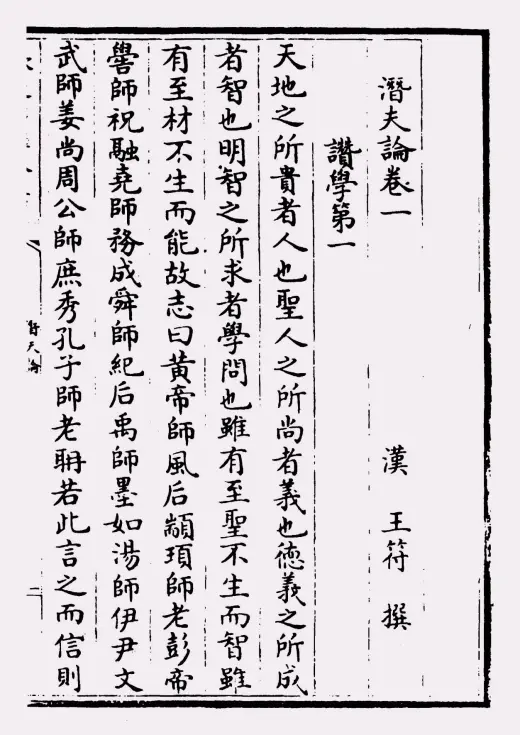 潛夫論卷一
漢 王符 撰
讚學第一
天地之所貴者人也聖人之所尚者義也德義之所成
者智也明智之所求者學問也雖有至聖不生而智雖
有至材不生而能故志曰黃帝師風后顓頊師老彭帝
嚳師祝融堯師務成舜師紀后禹師墨如湯師伊尹文
武師姜尚周公師庶秀孔子師老聃若此言之而信則